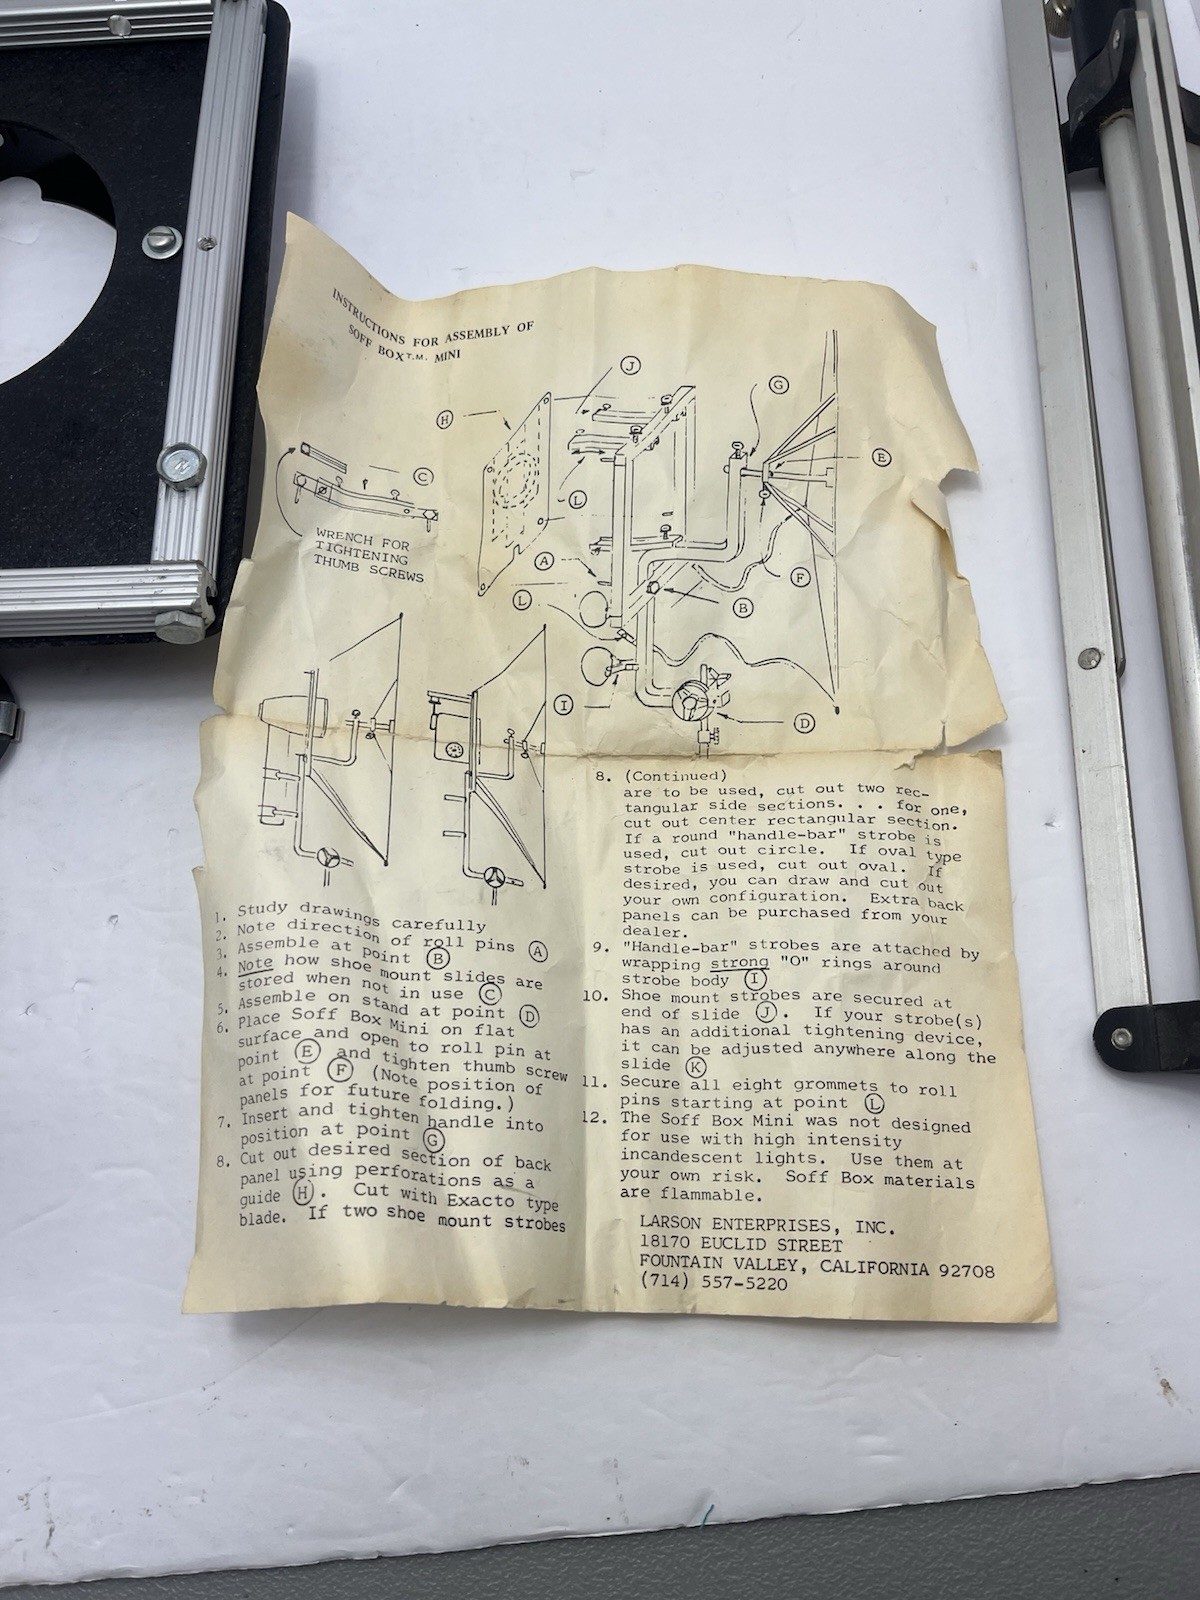 INSTRUCTIONS FOR ASSEMBLY OF
SOFF BOX T.M. MINI
J
G
H
E
C
L
WRENCH FOR
TIGHTENING
THUMB SCREWS
A
F
L
B
I
D
1. Study drawings carefully
2. Note direction of roll pins A
3. Assemble at point B
4. Note how shoe mount slides are
stored when not in use C
5. Assemble on stand at point D
6. Place Soff Box Mini on flat
surface and open to roll pin at
point E and tighten thumb screw
at point F (Note position of
panels for future folding.)
7. Insert and tighten handle into
position at point G
8. Cut out desired section of back
panel using perforations as a
guide H. Cut with Exacto type
blade. If two shoe mount strobes
8. (Continued)
are to be used, cut out two rec-
tangular side sections. . . for one,
cut out center rectangular section.
If a round "handle-bar" strobe is
used, cut out circle. If oval type
strobe is used, cut out oval. If
desired, you can draw and cut out
your own configuration. Extra back
panels can be purchased from your
dealer.
9. "Handle-bar" strobes are attached by
wrapping strong "O" rings around
strobe body I
10. Shoe mount strobes are secured at
end of slide J. If your strobe(s)
has an additional tightening device,
it can be adjusted anywhere along the
slide K
11. Secure all eight grommets to roll
pins starting at point L
12. The Soff Box Mini was not designed
for use with high intensity
incandescent lights. Use them at
your own risk. Soff Box materials
are flammable.
LARSON ENTERPRISES, INC.
18170 EUCLID STREET
FOUNTAIN VALLEY, CALIFORNIA 92708
(714) 557-5220